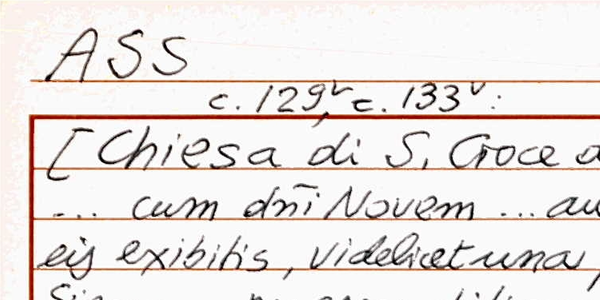 ASS
c. 129v, c. 133v:
[Chiesa di S. Croce
... cum dn̄i Novem ...
eis exibitis, videlicet una,